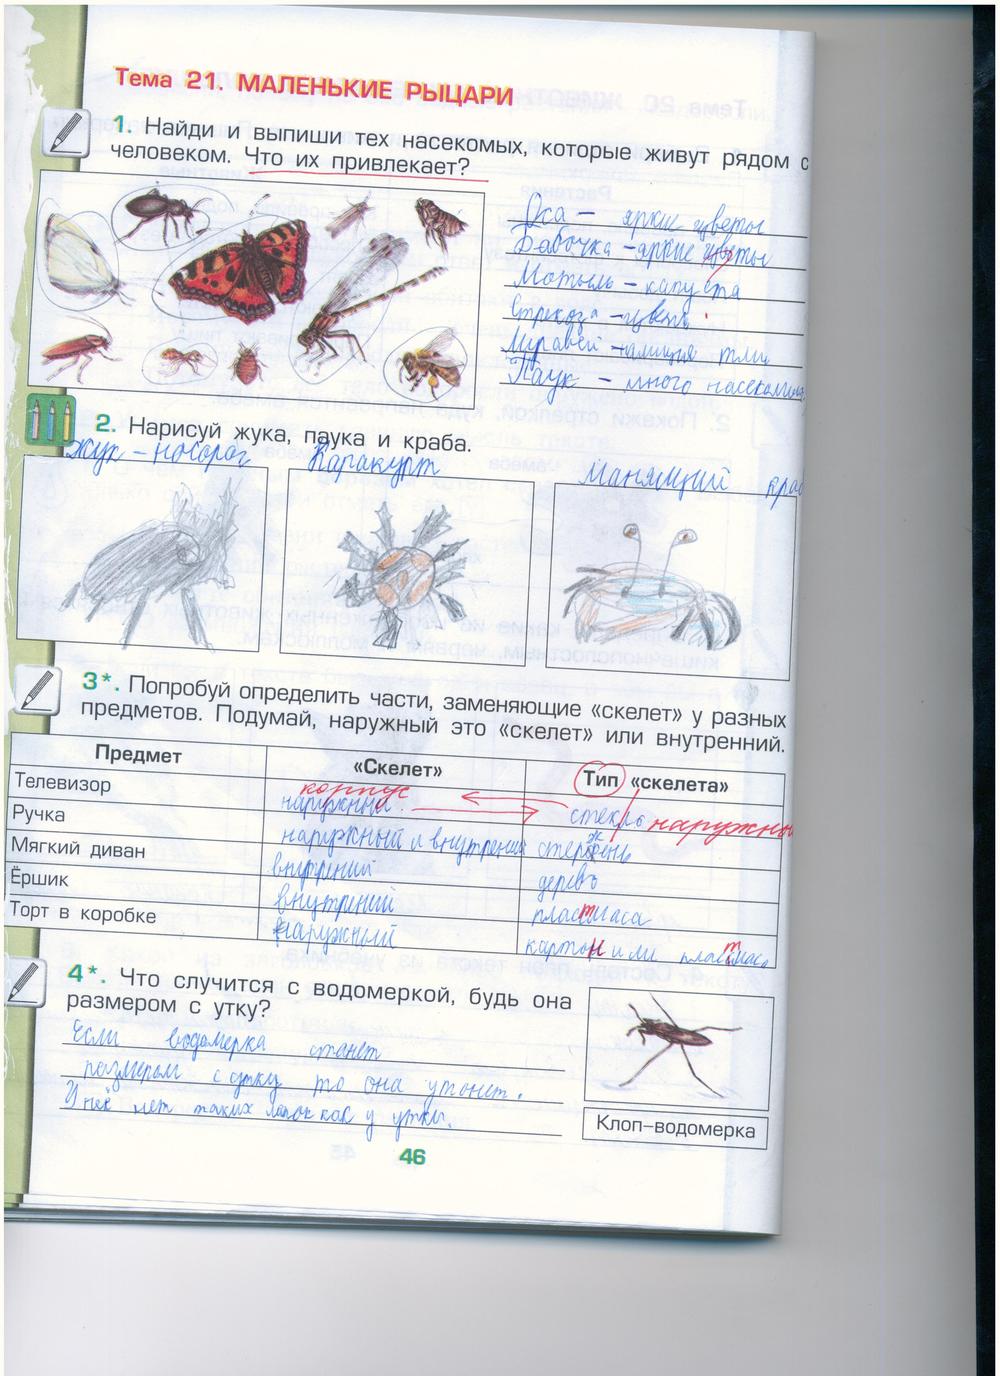 Тема 21. МАЛЕНЬКИЕ РЫЦАРИ
1. Найди и выпиши тех насекомых, которые живут рядом с
человеком. Что их привлекает?
Оса – яркие цветы
Бабочка – яркие цветы
Мотыль – капуста
Стрекоза – цветы
Муравей –
Паук – много насекомых
2. Нарисуй жука, паука и краба.
Жук – носорог
Каракурт
Манящий краб
3*. Попробуй определить части, заменяющие «скелет» у разных
предметов. Подумай, наружный это «скелет» или внутренний.
Предмет «Скелет» Тип «скелета»
Телевизор корпус наружный стекло наружны
Ручка наружный и внутрений стержень
Мягкий диван внутрений дерево
Ёршик внутриний пластмаса
Торт в коробке наружный картон или пластмаса
4*. Что случится с водомеркой, будь она
размером с утку?
Если водомерка станет
размером с утку то она утонет.
У неё нет таких лапок как у утки.
Клоп–водомерка
46